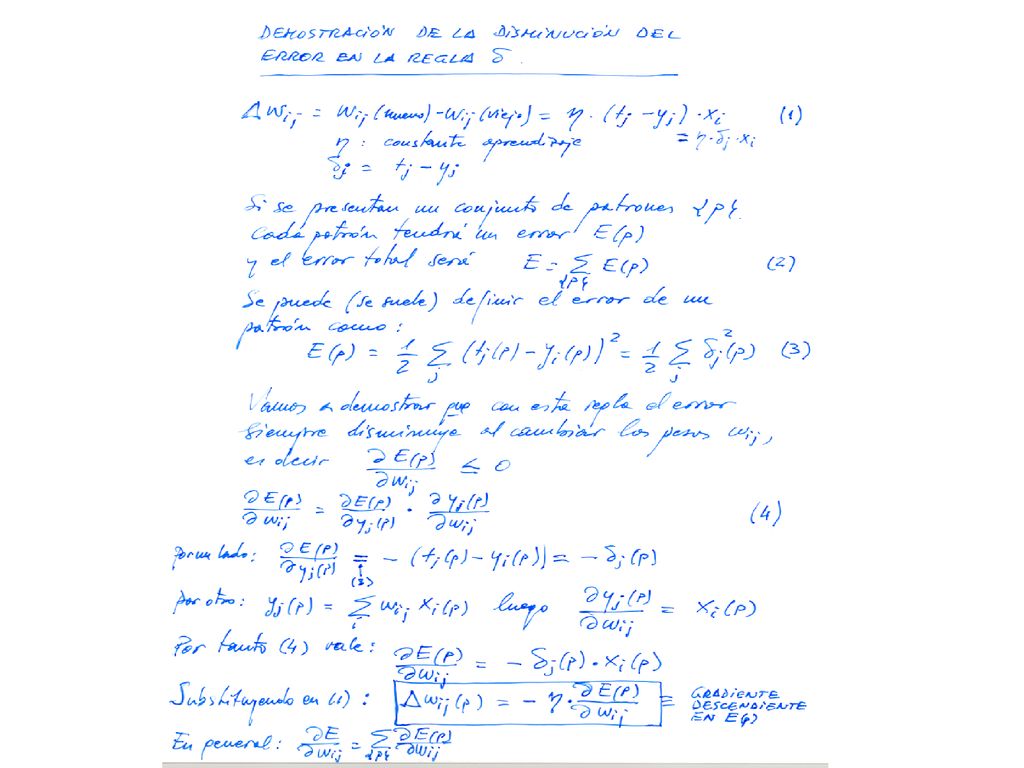 DEMOSTRACIÓN DE LA DISMINUCIÓN DEL
ERROR EN LA REGLA δ.
Δwij = wij (nuevo) - wij (viejo) = η · (tj - yj) · xi (1)
η : constante aprendizaje = η·δj·xi
δj = tj - yj
Si se presentan un conjunto de patrones {p}.
Cada patrón tendrá un error E(p)
y el error total será E = Σ{p} E(p) (2)
Se puede (se suele) definir el error de un
patrón como:
E(p) = 1/2 Σj (tj(p) - yj(p))² = 1/2 Σj δj²(p) (3)
Vamos a demostrar que con esta regla el error
siempre disminuye al cambiar los pesos wij,
es decir ∂E(p)/∂wij ≤ 0
∂E(p)/∂wij = ∂E(p)/∂yj(p) · ∂yj(p)/∂wij (4)
Por un lado: ∂E(p)/∂yj(p) = (3) - (tj(p) - yj(p)) = - δj(p)
por otro: yj(p) = Σi wij xi(p) luego ∂yj(p)/∂wij = xi(p)
Por tanto (4) vale: ∂E(p)/∂wij = - δj(p) · xi(p)
Substituyendo en (1): Δwij(p) = - η · ∂E(p)/∂wij ≡ GRADIENTE
DESCENDIENTE
EN E(p)
En general: ∂E/∂wij = Σ{p} ∂E(p)/∂wij